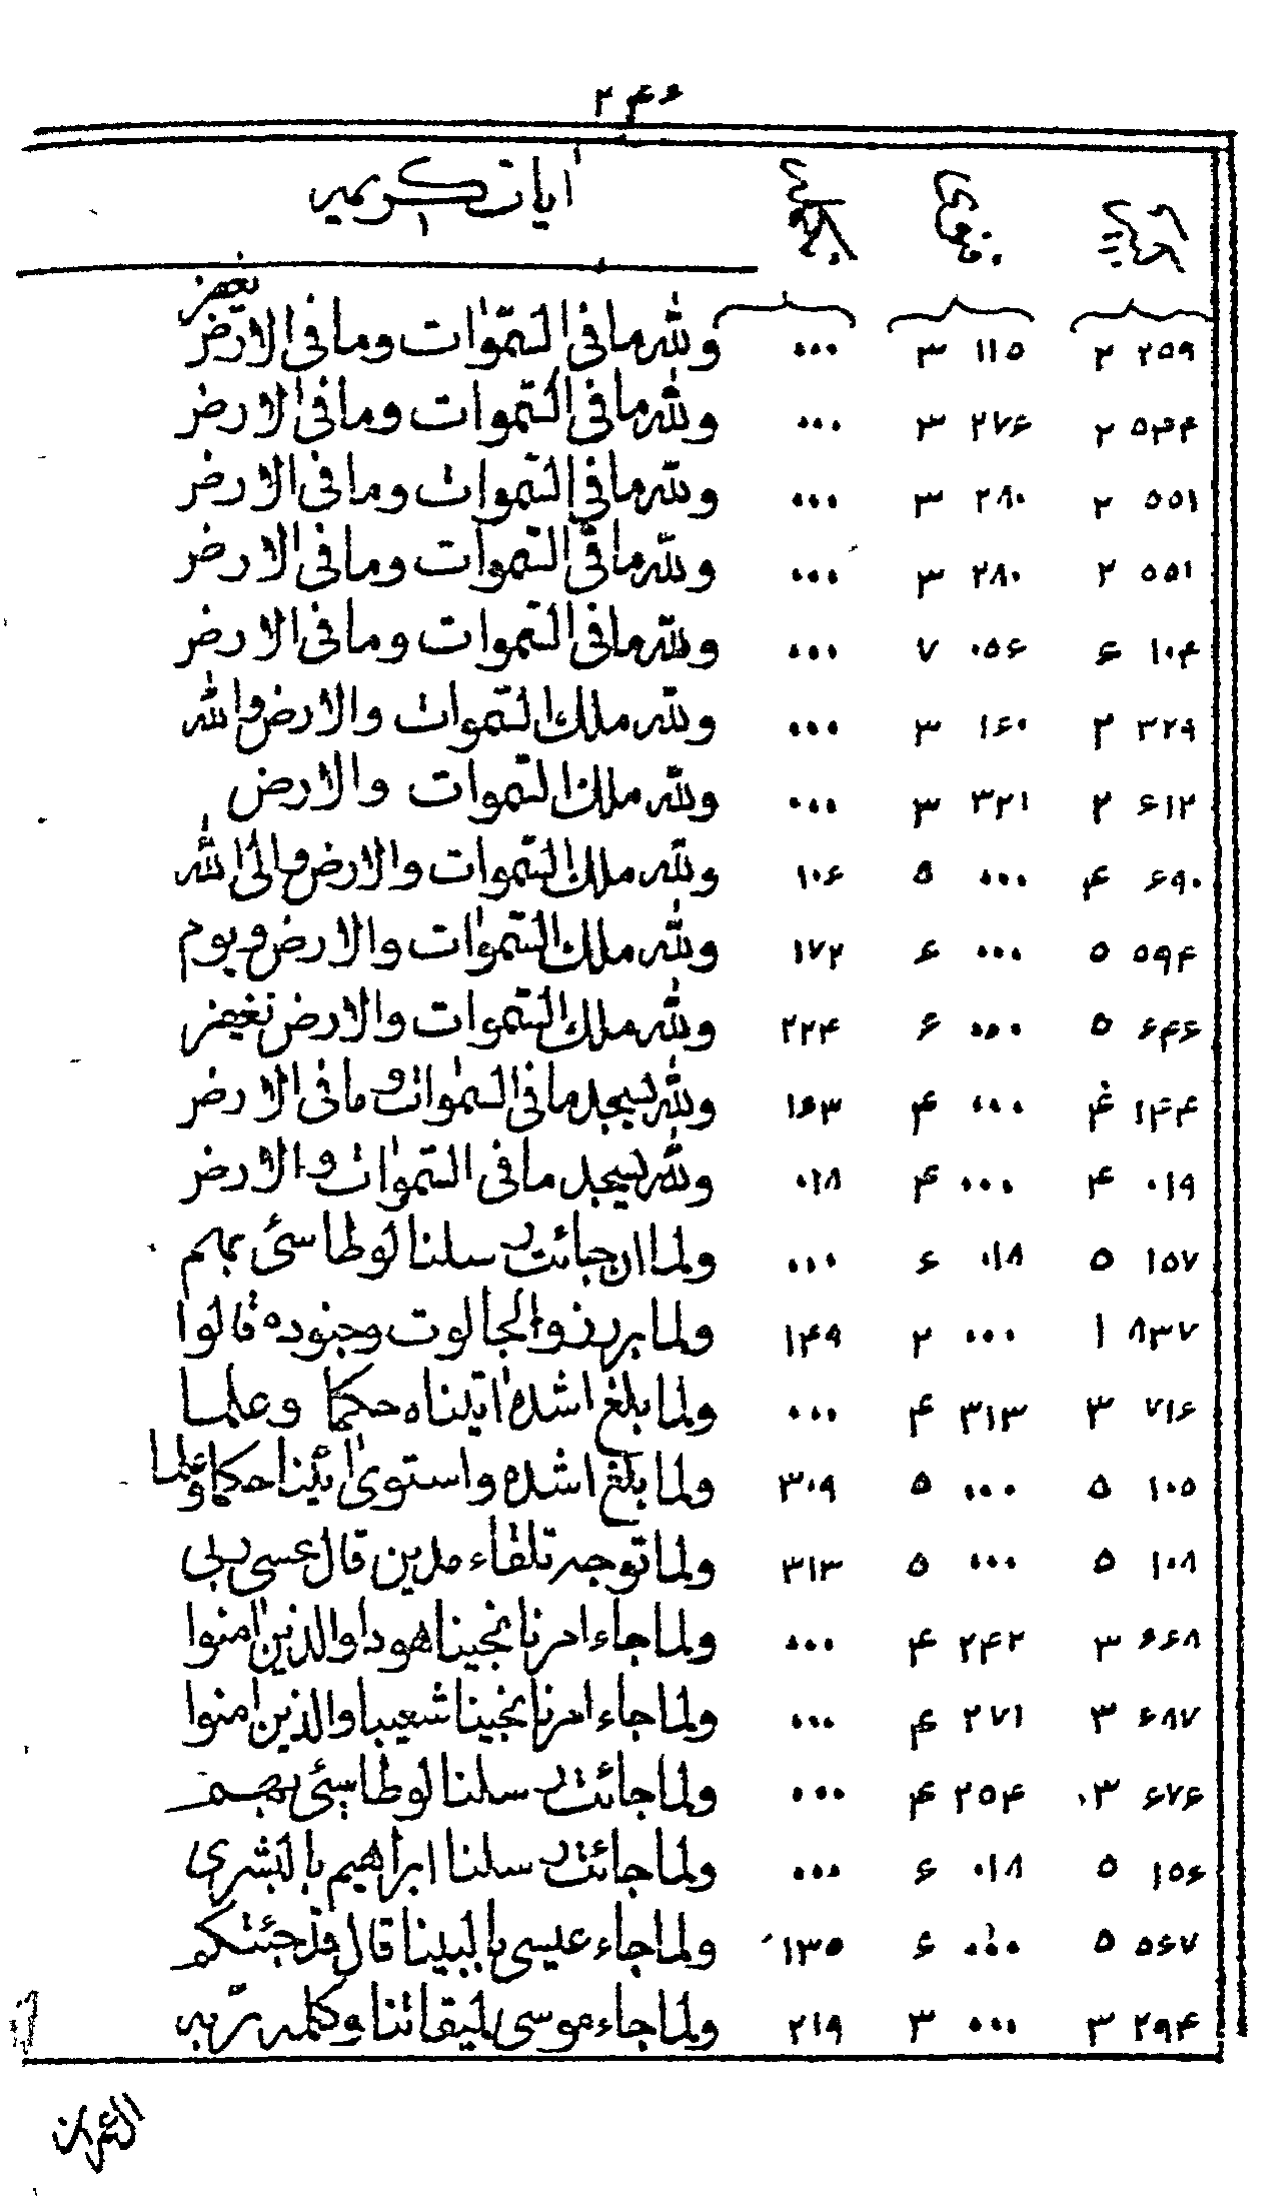 ۲۴۶
آیات کریمه
۲ ۲۵۹ ۳ ۱۱۵ ۰۰۰ ولله ما فی السموات وما فی الارض یغفر
۲ ۵۳۴ ۳ ۲۷۶ ۰۰۰ ولله ما فی السموات وما فی الارض
۲ ۵۵۱ ۳ ۲۸۰ ۰۰۰ ولله ما فی السموات وما فی الارض
۲ ۵۵۱ ۳ ۲۸۰ ۰۰۰ ولله ما فی السموات وما فی الارض
۶ ۱۰۴ ۷ ۰۵۶ ۰۰۰ ولله ما فی السموات وما فی الارض
۲ ۳۲۹ ۳ ۱۶۰ ۰۰۰ ولله ملك السموات والارض والله
۲ ۶۱۲ ۳ ۳۲۱ ۰۰۰ ولله ملك السموات والارض
۴ ۶۹۰ ۵ ۰۰۰ ۱۰۶ ولله ملك السموات والارض والی الله
۵ ۵۹۴ ۶ ۰۰۰ ۱۷۲ ولله ملك السموات والارض ویوم
۵ ۶۴۶ ۶ ۰۰۰ ۲۲۴ ولله ملك السموات والارض یغفر
۴ ۱۴۴ ۴ ۰۰۰ ۱۶۳ ولله یسجد ما فی السموات وما فی الارض
۴ ۰۱۹ ۴ ۰۰۰ ۰۱۸ ولله یسجد ما فی السموات والارض
۵ ۱۵۷ ۶ ۰۱۸ ۰۰۰ ولما ان جائت رسلنا لوطا سئ بهم
۱ ۸۳۷ ۲ ۰۰۰ ۱۴۹ ولما برزوا لجالوت وجنوده قالوا
۳ ۷۱۶ ۴ ۳۱۳ ۰۰۰ ولما بلغ اشده اتیناه حکما وعلما
۵ ۱۰۵ ۵ ۰۰۰ ۳۰۹ ولما بلغ اشده واستوی اتینا حکما وعلما
۵ ۱۰۸ ۵ ۰۰۰ ۳۱۳ ولما توجه تلقاء مدین قال عسی ربی
۳ ۶۶۸ ۴ ۲۴۲ ۰۰۰ ولما جاء امرنا نجینا هودا والذین امنوا
۳ ۶۸۷ ۴ ۲۷۱ ۰۰۰ ولما جاء امرنا نجینا شعیبا والذین امنوا
۳ ۶۷۶ ۴ ۲۵۴ ۰۰۰ ولما جائت رسلنا لوطا سیئ بهم
۵ ۱۵۶ ۶ ۰۱۸ ۰۰۰ ولما جائت رسلنا ابراهیم بالبشری
۵ ۵۶۷ ۶ ۰۰۰ ۱۳۵ ولما جاء عیسی بالبینا قال قد جئتکم
۳ ۲۹۴ ۳ ۰۰۰ ۲۱۹ ولما جاء موسی لمیقاتنا وکلمه ربه